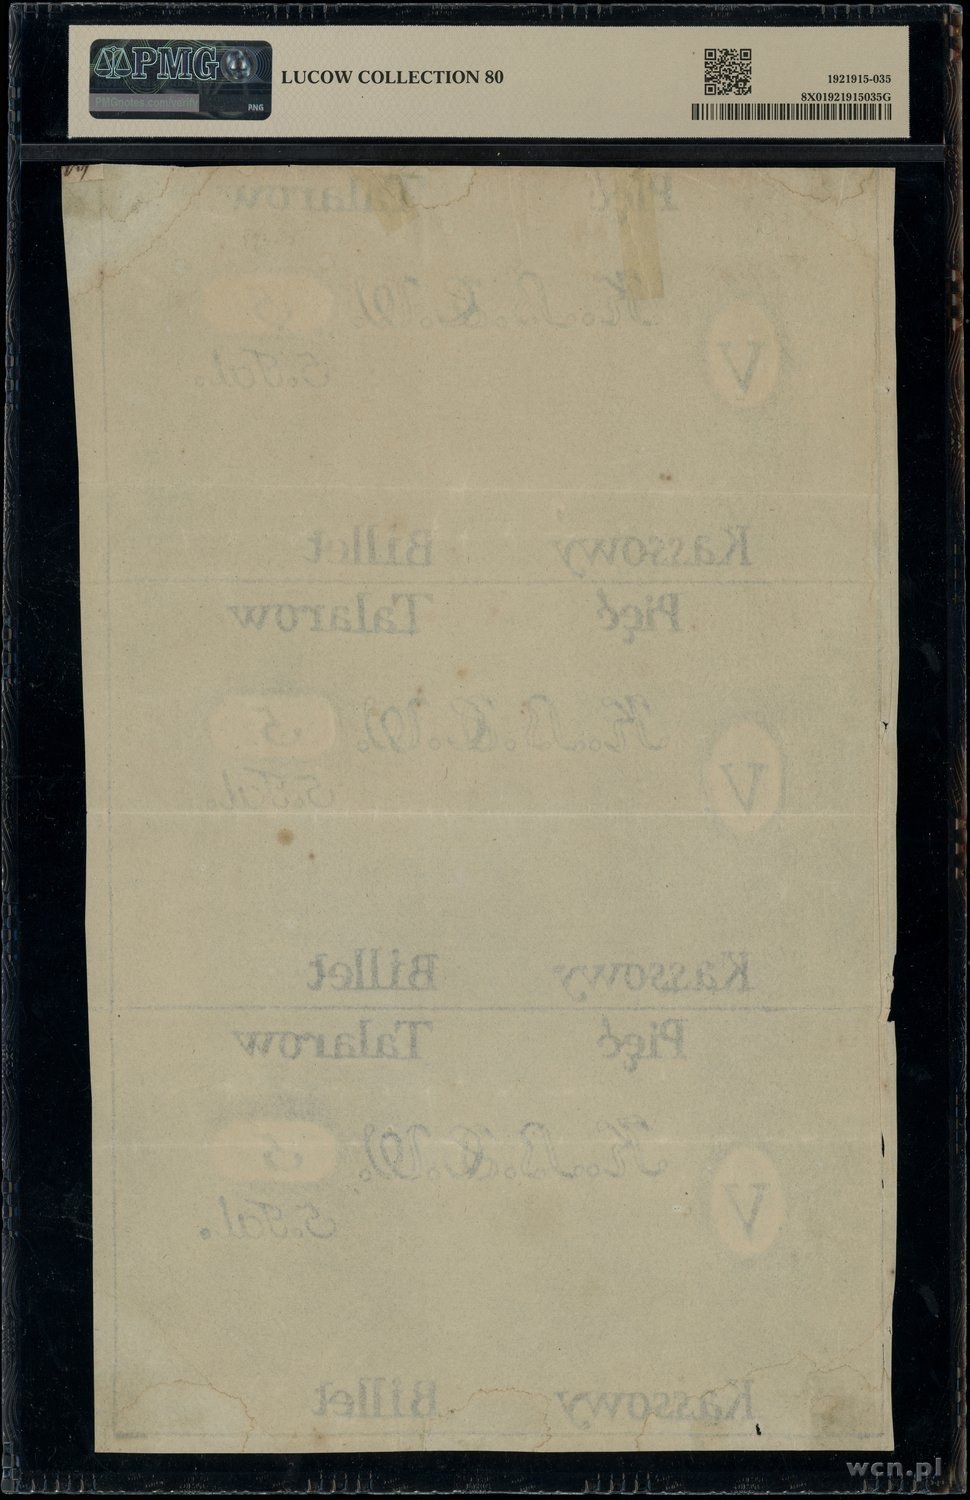 PMG
PMGnotes.com/verify
PNG
LUCOW COLLECTION 80
1921915-035
8X01921915035G
Pięć Talarow
5
V
5.Tal.
Kassowy Billet
Pięć Talarow
5
V
5.Tal.
Kassowy Billet
Pięć Talarow
5
V
5.Tal.
Kassowy Billet
wcn.pl